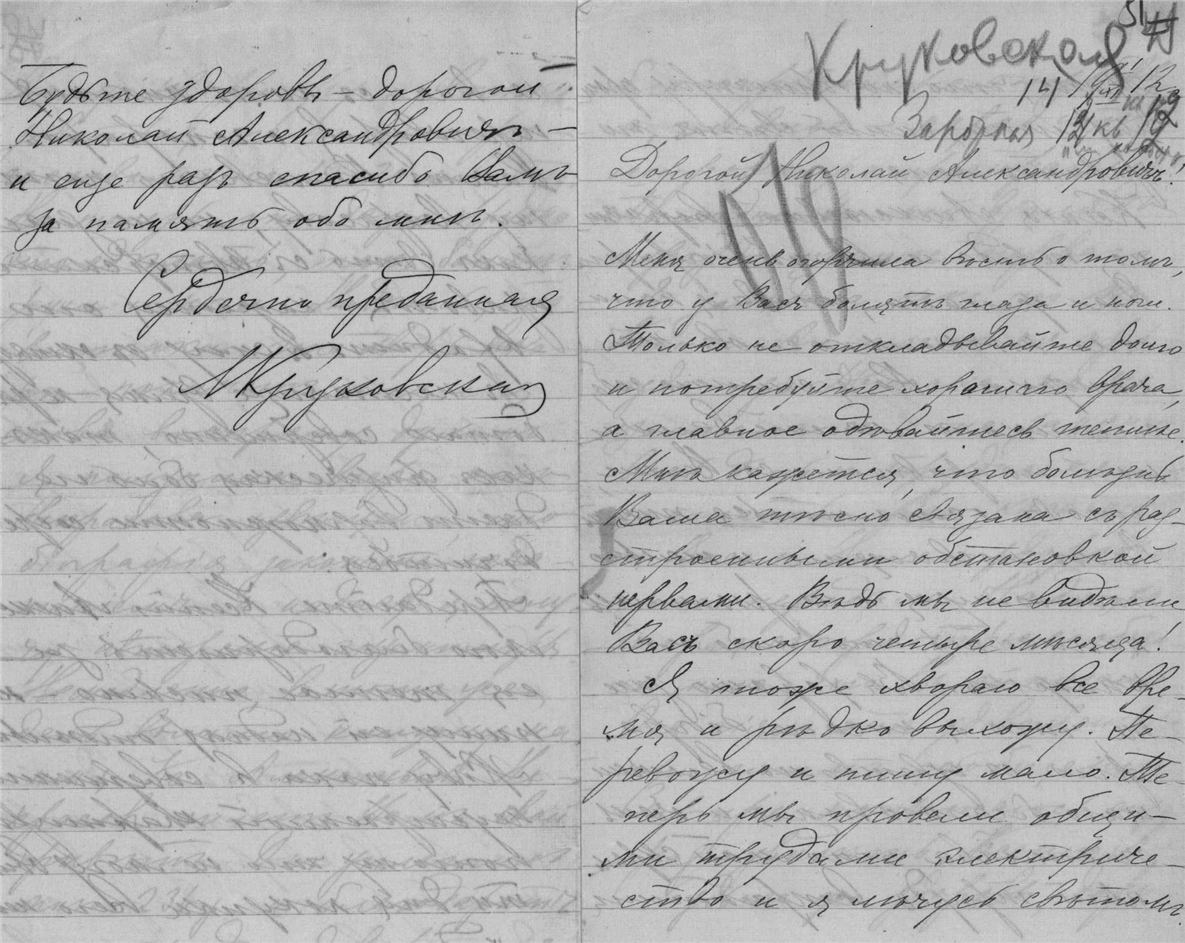 Будьте здоровы – дорогой
Николай Александровичъ –
и еще разъ спасибо Вамъ
за память обо мнѣ.
Сердечно преданная
МКруковская
Круковская
51
14
кв
Дорогой Николай Александровичъ!
Меня очень огорчила вѣсть о томъ,
что у Васъ болятъ глаза и ноги.
Только не откладывайте долго
и потребуйте хорошаго врача,
а главное одѣвайтесь теплѣе.
Мнѣ кажется, что болѣзнь
Ваша тѣсно связана съ раз-
строенными обстановкой
нервами. Вѣдь мы не видѣли
Васъ скоро четыре мѣсяца!
Я тоже хвораю все вре-
мя и рѣдко выхожу. Пе-
ревожу и пишу мало. Те-
перь мы провели общи-
ми трудами электриче-
ство и я мучусь свѣтомъ.